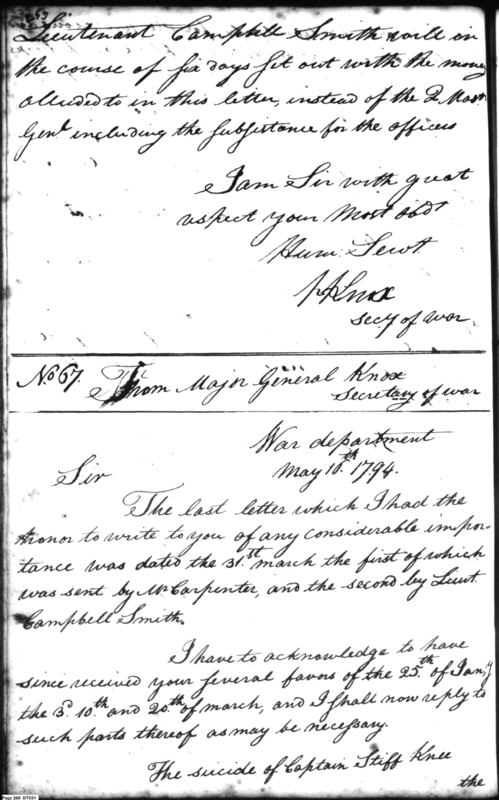 Lieutenant Campbell Smith will in
the course of six days set out with the money
alluded to in this letter, instead of the 2 Mast.
Genl. including the subsistance for the officers
I am Sir with great
respect your Most obdt
Hum: Servt.
HKnox
secy of war
No 67. From Major General Knox
secretary of war
War department
May 16th 1794.
Sir
The last letter which I had the
honor to write to you of any considerable impor-
tance was dated the 31st march the first of which
was sent by Mr Carpenter, and the second by Lieut
Campbell Smith.
I have to acknowledge to have
since received your several favors of the 25th of Jany
the 3d 10th and 20th of march, and I shall now reply to
such parts thereof as may be necessary.
The suicide of Captain Stiff Knee
the
Page 269 DTC01